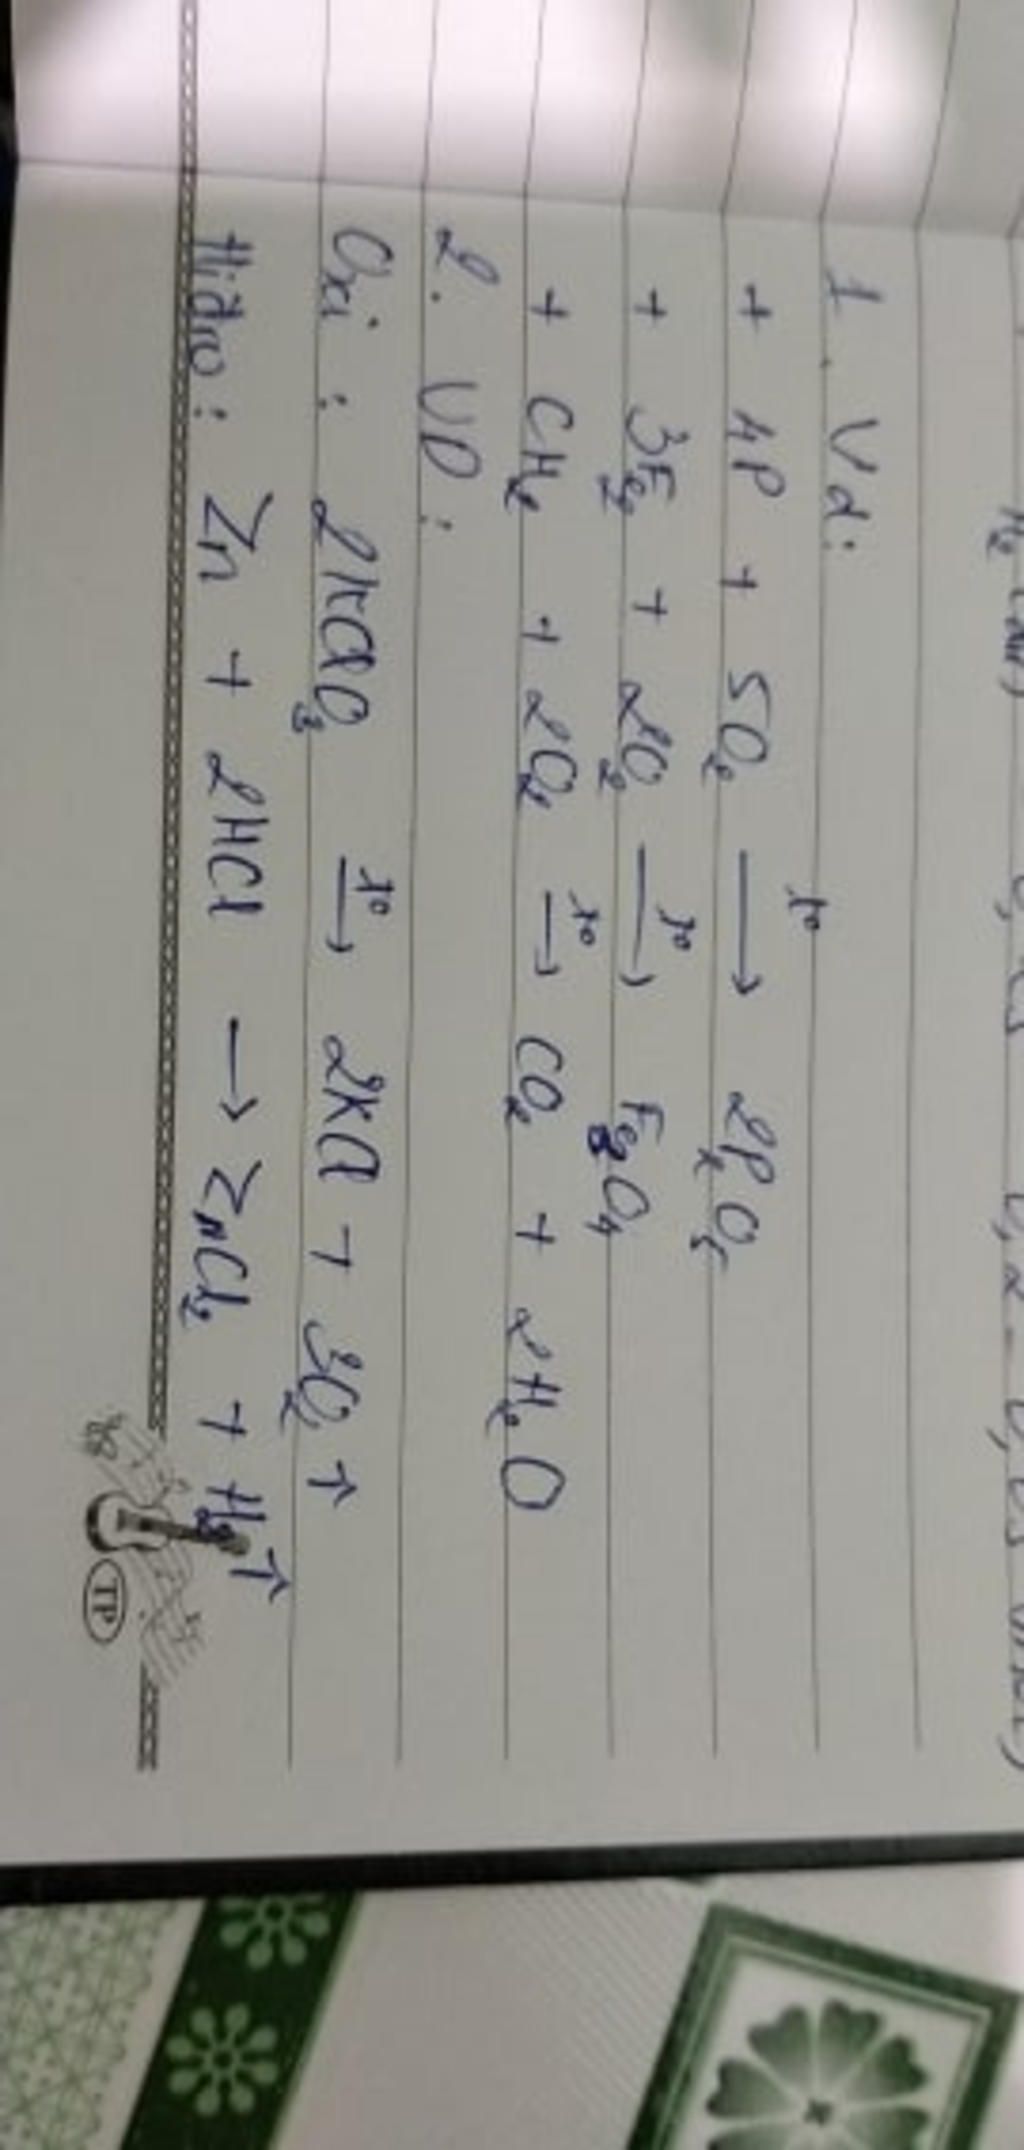 1. Vd:
+ 4P + 5O₂ —t°→ 2P₂O₅
+ 3Fe₂ + 2O₂ —t°→ Fe₃O₄
+ CH₄ + 2O₂ —t°→ CO₂ + 2H₂O
2. VD:
Oxi: 2KClO₃ —t°→ 2KCl + 3O₂ ↑
Hiđro: Zn + 2HCl → ZnCl₂ + H₂↑
TP